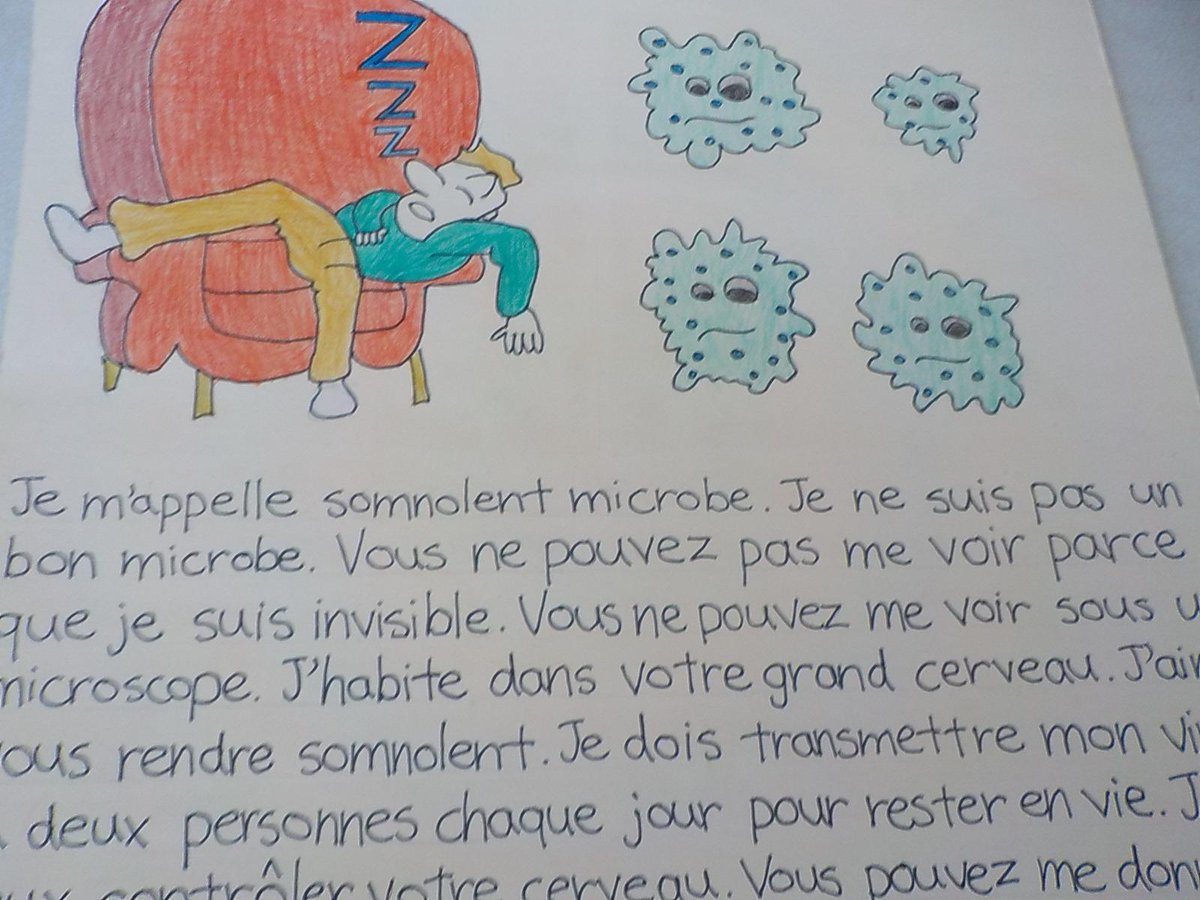 Z
Z
Z
Je m'appelle somnolent microbe. Je ne suis pas un
bon microbe. Vous ne pouvez pas me voir parce
que je suis invisible. Vous ne pouvez me voir sous
microscope. J'habite dans votre grand cerveau.
vous rendre somnolent. Je dois transmettre mon
deux personnes chaque jour pour rester en vie.
contrôler votre cerveau. Vous pouvez me